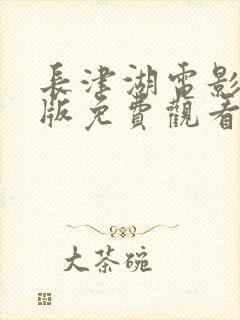 長津湖電影
版免費觀看
大茶碗